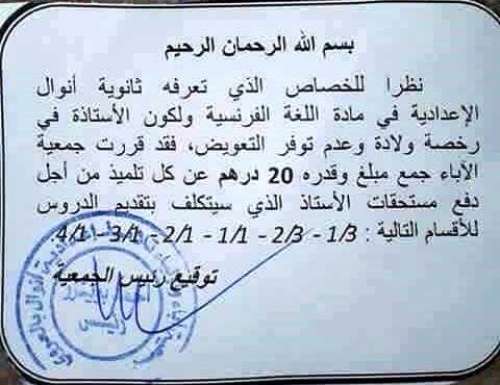 بسم الله الرحمان الرحيم
نظرا للخصاص الذي تعرفه ثانوية أنوال
الإعدادية في مادة اللغة الفرنسية ولكون الأستاذة في
رخصة ولادة وعدم توفر التعويض، فقد قررت جمعية
الآباء جمع مبلغ وقدره 20 درهم عن كل تلميذ من أجل
دفع مستحقات الأستاذ الذي سيتكلف بتقديم الدروس
للأقسام التالية : 1/3 - 2/3 - 1/1 - 2/1 - 3/1 - 4/1.
توقيع رئيس الجمعية